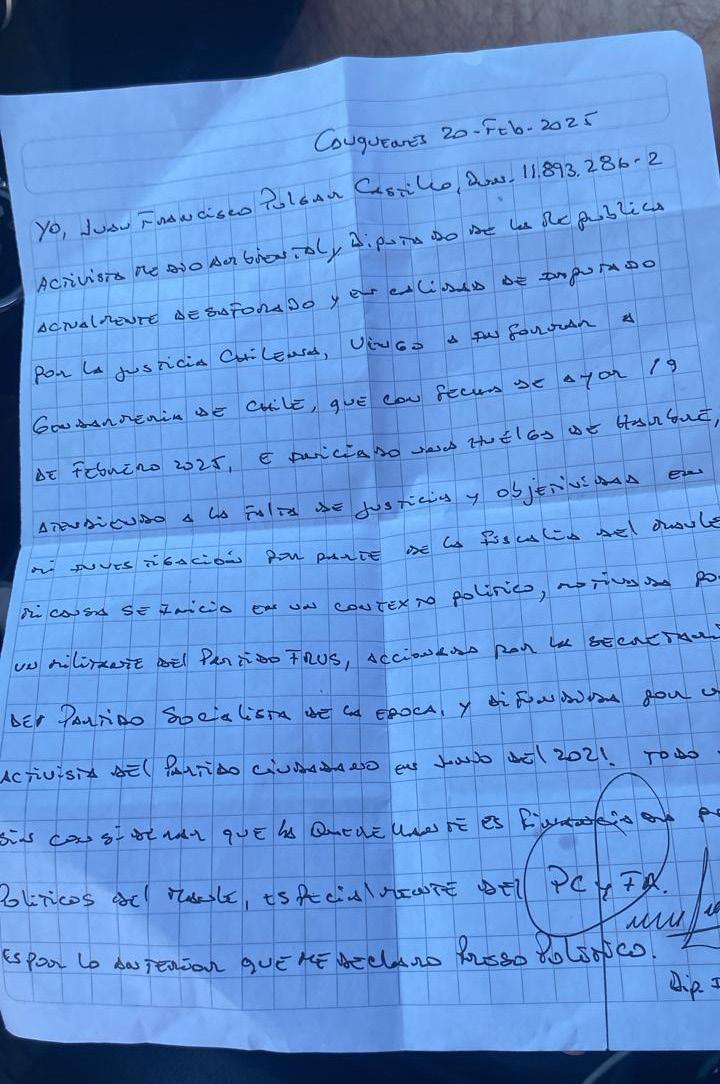 Cauquenes 20-Feb-2025
Yo, Juan Francisco Pulgar Castillo, Run. 11.893.286-2
Activista medio ambiental y Diputado de la Republica
actualmente desaforado y en calidad de imputado
por la justicia Chilena, vengo a informar a
Gendarmeria de Chile, que con fecha de ayer 19
de Febrero 2025, e iniciado una Huelga de Hambre,
atendiendo a la falta de justicia y objetividad en
mi investigación por parte de la fiscalia del Maule
mi causa se inicio en un contexto politico, motivada po
un militante del Partido FRVS, accionada por la secretari
del Partido Socialista de la epoca, y difundida por u
activista del Partido ciudadano en Junio del 2021. Todo
sin considerar que la Querellante es financiada po
Politicos del Maule, especialmente del PC y FA.
es por lo anterior que me declaro Preso Politico.
Dip.